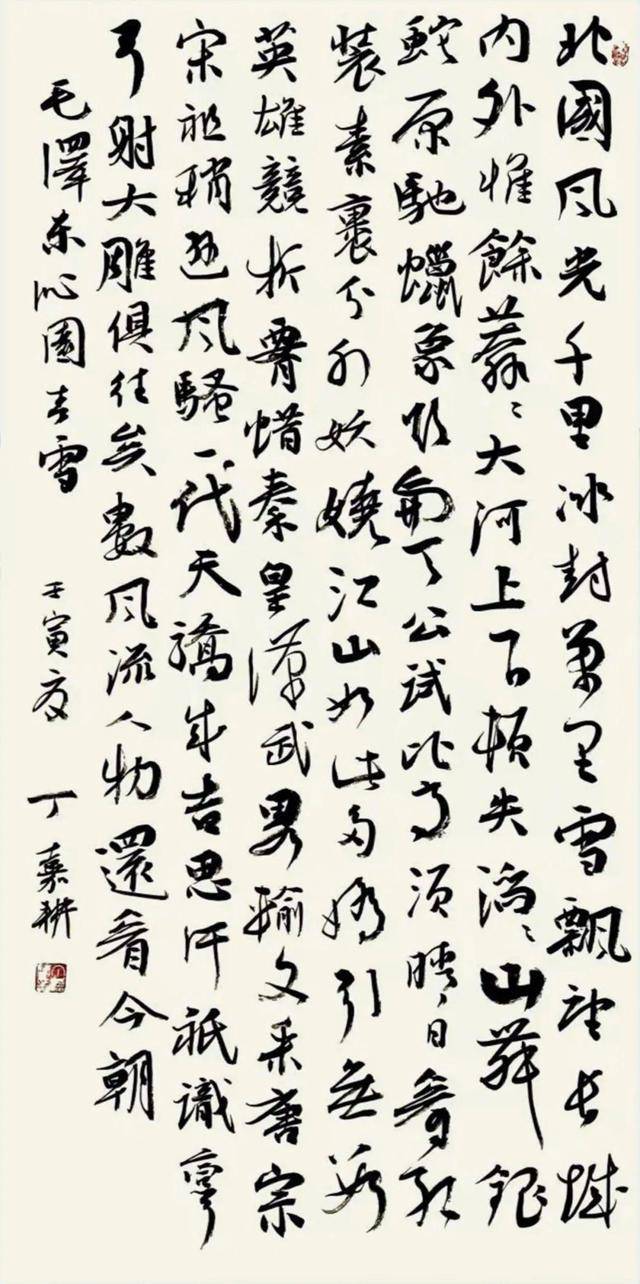 北國風光千里冰封萬里雪飄望長城
内外惟餘莽々大河上下頓失滔々山舞銀
蛇原馳蠟象欲與天公試比高須晴日看紅
裝素裹分外妖嬈江山如此多嬌引無數
英雄競折腰惜秦皇漢武畧輸文采唐宗
宋祖稍遜風騷一代天驕成吉思汗祇識彎
弓射大雕俱往矣數風流人物還看今朝
毛澤东沁園春雪 壬寅夏 丁嘉耕